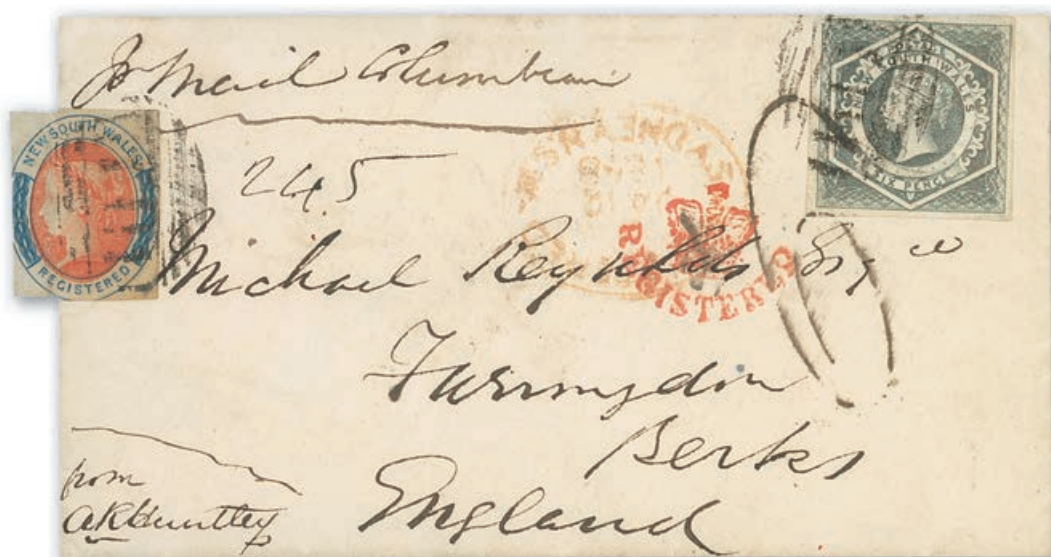 Mail Columbian
NEW SOUTH WALES
REGISTERED
SOUTH WALES
SIX PENCE
245
REGISTERED
Michael Reynolds Esqre
Farringdon
Berks
England
from
AKHuntley